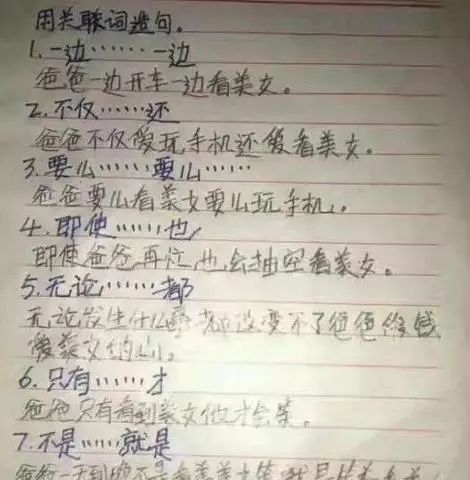 用关联词造句。
1.一边……一边
爸爸一边开车一边看美女。
2.不仅……还
爸爸不仅爱玩手机还爱看美女。
3.要么……要么……
爸爸要么看美女要么玩手机。
4.即使……也
即使爸爸再忙,也会抽空看美女。
5.无论……都
无论发生什么事都改变不了爸爸
爱美女的心。
6.只有……才
爸爸只有看到美女他才会笑。
7.不是……就是
爸爸一天到晚不是看着美女笑就是